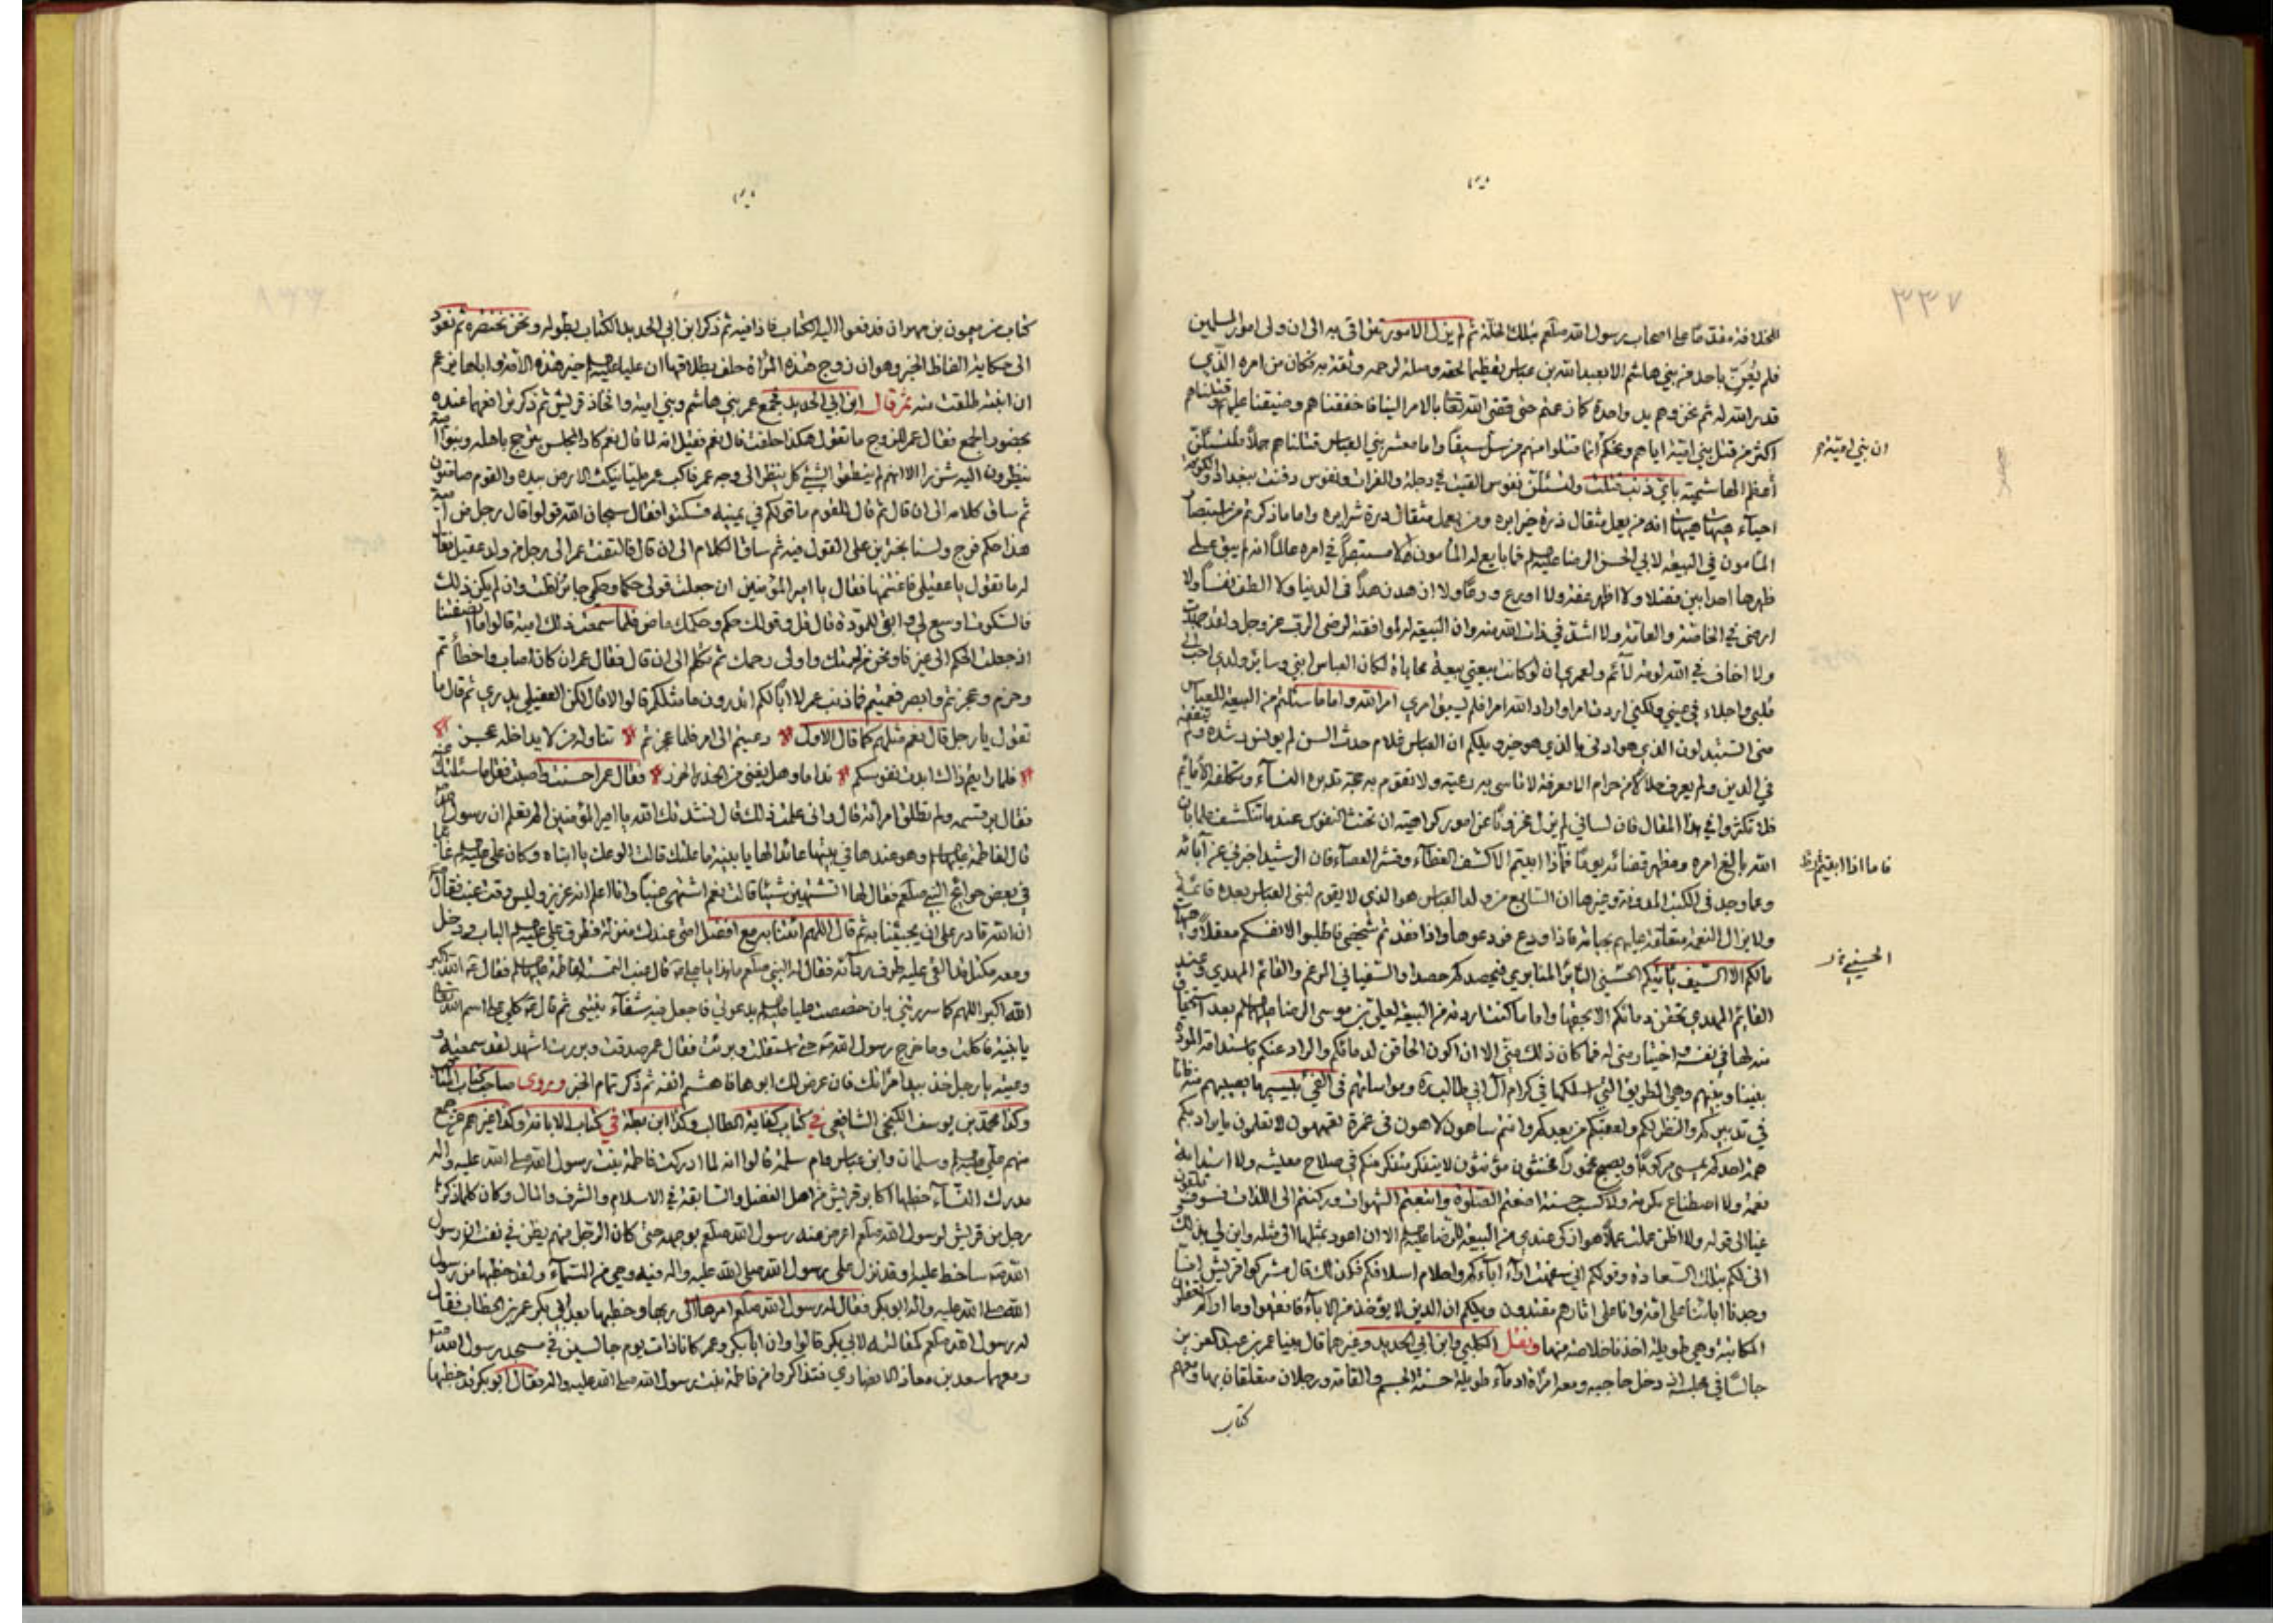 ٣٣٧
للخلافة مقدما على اصحاب رسول الله صلعم بتلك الخلة ثم لم يزل الامور تتراقى به الى ان ولى امور المسلمين
فلم يعن باحد من بني هاشم الا بعبد الله بن عباس تعظيما لحقه وصلة لرحمه وثقة به فكان من امره الذي
قدر الله له ثم نحن وهم يد واحدة كما زعمتم حتى قضى الله تعالى بالامر الينا فاخفناهم وضيقنا عليهم وقتلناهم
اكثر من قتل بني امية اياهم ويحكم انما قتلوا منهم من سل سيفا واما معشر بني العباس قتلناهم جملا فلتسئلن
ان بني امية
أعظم الهاشمية باي ذنب قتلت ولتسئلن نفوس القيت في دجلة والفرات ونفوس دفنت ببغداد والكوفة
احياء هيهات هيهات انه من يعمل مثقال ذرة خيرا يره ومن يعمل مثقال ذرة شرا يره واما ما ذكرتم من استبصار
المأمون في البيعة لابي الحسن الرضا عليه السلم فما بايع له المأمون الا مستبصرا في امره عالما انه لم يبق على
ظهرها احدا بين فضلا ولا اظهر عفة ولا اورع ورعا ولا ازهد زهدا في الدنيا ولا اطلق نفسا ولا
ارضى في الخاصة والعامة ولا اشد في ذات الله منه وان البيعة له لموافقة لرضى الرب عز وجل ولقد جهدت
ولا اخاف في الله لومة لائم ولعمري ان لو كانت بيعتي بيعة محاباة لكان العباس ابني وساير ولدي احب الى
قلبي واجلاء في عيني ولكني اردت امرا واراد الله امرا فلم يسبق امري امر الله
في الدين ولم يعرف حلالا من حرام الا معرفة
فلا تكثروا في هذا المقال فان لساني لم يزل مخزونا عن امور
الله بالغ امره ومظهر قضائه يوما فاذا ابيتم الا كشف الغطاء وقشر العصاء فان الرشيد اخبرني عن آبائه
فاما اذا ابيتم
وعما وجد في الكتب
ولا يزال النعمة متعلقة عليهم بحياته فاذا ودع فودعوها واذا فقدتم شخصي فاطلبوا لانفسكم معقلا وهيهات
الحسني
مالكم الا السيف يأتيكم الحسني الثائر فيحصدكم حصدا والسفياني المرغم والقائم المهدي
القائم المهدي يحقن دمائكم الا بحقها واما ما كنت اردته من البيعة لعلي بن موسى الرضا عليهما السلم بعد استحقاق
منه لها في نفسه واختيار مني له فما كان ذلك مني الا ان اكون الحاقن لدمائكم والزائد عنكم باستدامة المودة
بيننا وبينهم وهي الطريق التي اسلكها في كرام آل ابي طالب ومواساتهم في الفيء بيسير ما يصيبهم منه
وانتم ساهون لاهون في غمرة تعمهون لا تعلمون ما يراد بكم
نعمة ولا اصطناع مكرمة ولا كسب حسنة اضعتم الصلوة واتبعتم الشهوات
وجدنا ابائنا على امة وانا على اثارهم مقتدون
المكاتبة وهي طويلة اخذنا خلاصة منها ونقل الكلبي وابن ابي الحديد وغيرهما قال بينا عمر بن عبد العزيز
جالسا في مجلسه اذ دخل حاجبه ومعه امرأة ادماء طويلة حسنة الجسم والقامة ورجلان متعلقان بها ومعهم
كتاب
كتاب من ميمون بن مهران فدفعوا اليه الكتاب فاذا فيه ثم ذكر ابن ابي الحديد الكتاب بطوله ونحن نختصره ثم نعود
الى حكاية الفاظ الخبر وهو ان زوج هذه المرأة حلف بطلاقها ان عليا عليه السلم خير هذه الامة وان اباها زعم
ان ابنته طلقت منه ثم قال ابن ابي الحديد فجمع عمر بني هاشم وبني امية وافخاذ قريش
بحضور الجمع فقال عمر للزوج ما تقول هكذا حلفت قال نعم فقيل انه لما قال نعم كاد المجلس يرتج باهله وبنو امية
ينظرون اليه شزرا الا انهم لم ينطقوا بشيء كل ينظر الى وجه عمر فاكب عمر مليا ينكت الارض بيده والقوم صامتون
ثم ساق كلامه الى ان قال ثم قال للقوم ما تقولكم في يمينه فسكتوا فقال سبحان الله قولوا قال رجل من امية
هذا حكم فرج ولسنا نجترئ على القول فيه ثم ساق الكلام الى ان قال فالتفت عمر الى رجل من ولد عقيل فقال
له ما تقول يا عقيلي فاغتنمها فقال يا امير المؤمنين ان جعلت قولي حكما وحكمي جائزا قلت وان لم يكن ذلك
فالسكوت اوسع لي وابقى للمودة قال قل وقولك حكم وحكمك ماض فلما سمعت ذلك امية قالوا ما انصفتنا
اذ جعلت الحكم الى غيرنا ونحن من لحمتك واولى رحمك ثم تكلم الى ان قال فقال عمر ان كان اصاب واخطأتم
وحزم وعجزتم وابصر فعميتم فما ذنب عمر لا ابا لكم اتدرون ما مثلكم قالوا لا قال لكن العقيلي يدري ثم قال ما
تقول يا رجل قال نعم مثلهم كما قال الاول دعيتم الى امر فلما عجزتم تناوله من لا يداخله عجز
فلما رايتم ذاك ابدت نفوسكم نداما وهل يغني من الحذر الحذر فقال عمر احسنت واصبت فقل ما سئلتك عنه
فقال بر قسمه ولم تطلق امرأته قال وانى علمت ذلك قال نشدتك الله يا امير المؤمنين الم تعلم ان رسول الله
قال لفاطمة عليها السلم وهو عندها في بيتها عائدا لها يا بنية ما علتك قالت الوعك يا ابتاه وكان علي عليه السلم غائبا
في بعض حوائج النبي صلعم فقال لها اتشتهين شيئا قالت نعم اشتهي عنبا وانا اعلم انه عزيز وليس وقت عنب فقال
ان الله قادر على ان يجيئنا به ثم قال اللهم ائتنا به مع افضل امتي عندك منزلة فطرق علي عليه السلم الباب ودخل
ومعه مكتل قد القى عليه طرف ردائه فقال له النبي صلعم ما هذا يا علي قال عنب التمسته لفاطمة عليها السلم فقال الله اكبر
الله اكبر اللهم كما سررتني بان خصصت عليا بدعوتي فاجعل فيه شفاء بنيتي ثم قال كلي على اسم الله تعالى
يا بنية فاكلت وما خرج رسول الله حتى استقلت وبرئت فقال عمر صدقت وبررت اشهد لقد سمعته و
وعيته يا رجل خذ بيد امرأتك فان عرض لك ابوها فاهشم انفه ثم ذكر تمام الخبر وروى صاحب كتاب
وكذا محمد بن يوسف الكنجي الشافعي في كتاب كفاية الطالب وكذا ابن بطة في كتاب الابانة وكذا غيرهم عن جمع
منهم علي عليه السلم وسلمان وابن عباس وام سلمة قالوا انه لما ادركت فاطمة بنت رسول الله صلى الله عليه واله
مدرك النساء خطبها اكابر قريش من اهل الفضل والسابقة في الاسلام والشرف والمال وكان كلما ذكرها
رجل من قريش لرسول الله صلعم اعرض عنه رسول الله صلعم بوجهه حتى كان الرجل منهم يظن في نفسه ان رسول
الله ساخط عليه او قد نزل على رسول الله صلى الله عليه واله فيه وحي من السماء ولقد خطبها من رسول
الله صلى الله عليه واله ابو بكر فقال له رسول الله صلعم امرها الى ربها وخطبها بعد ابي بكر عمر بن الخطاب فقال
له رسول الله صلعم كمقالته لابي بكر قالوا وان ابا بكر وعمر كانا ذات يوم جالسين في مسجد رسول الله
ومعهما سعد بن معاذ الانصاري فتذاكروا من فاطمة بنت رسول الله صلى الله عليه واله فقال ابو بكر قد خطبها